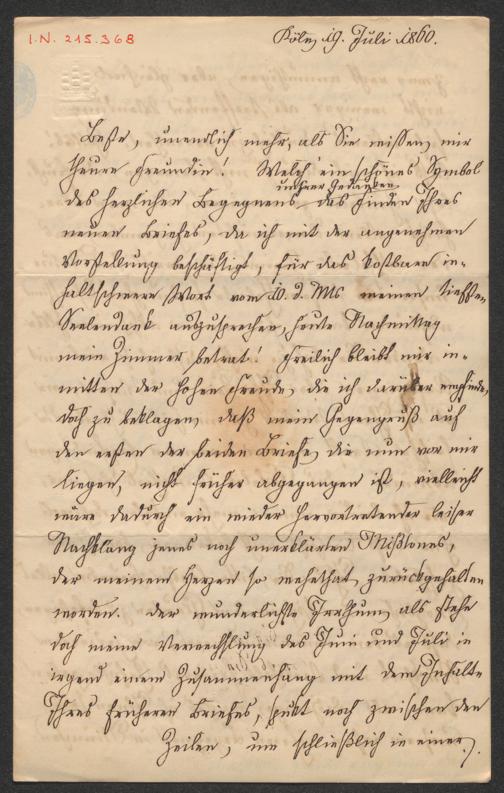 I.N. 215.368
Köln, 19. Juli 1860.
Beste, unendlich mehr, als Sie wissen, mir
theure Freundin! Welch' ein schönes Symbol
unserer Gedanken
des herzlichen Begegnens das Finden Ihres
neuen Briefes, da ich mit der angenehmen
Vorstellung beschäftigt, für das kostbare in-
haltschwere Wort vom 10. d. Mts meinen tiefsten
Seelendank auszusprechen, heute Nachmittag
mein Zimmer betrat! Freilich bleibt mir in-
mitten der hohen Freude, die ich darüber empfinde,
doch zu beklagen, daß mein Gegengruß auf
den ersten der beiden Briefe, die nun vor mir
liegen, nicht früher abgegangen ist, vielleicht
wäre dadurch ein wieder hervortretender leiser
Nachklang jenes noch unerklärten Mißtones,
der meinem Herzen so wehethat, zurückgehalten
worden. Der wunderlichste Irrthum, als stehe
doch meine Verwechslung des Juni und Juli in
irgend einem Zusammenhang mit dem Inhalte
Ihres früheren Briefes, spukt noch zwischen den
Zeilen, um schließlich in einer